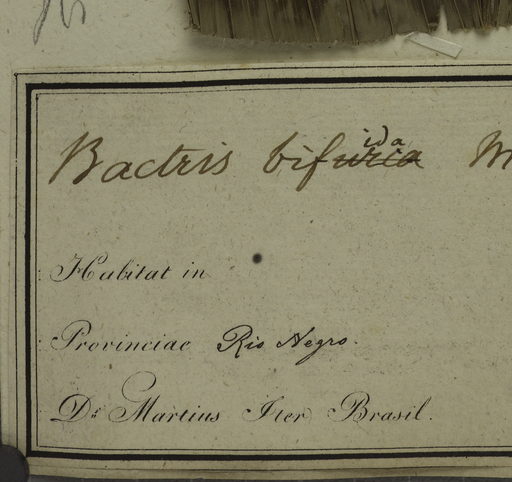 Bactris bifida M
Habitat in
Provinciae Rio Negro.
Dr. Martius Iter Brasil.